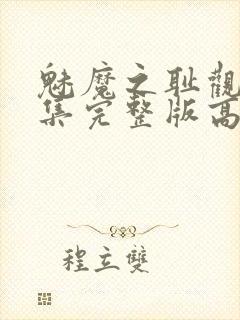 魅魔之耻觀
集完整版高
程立雙